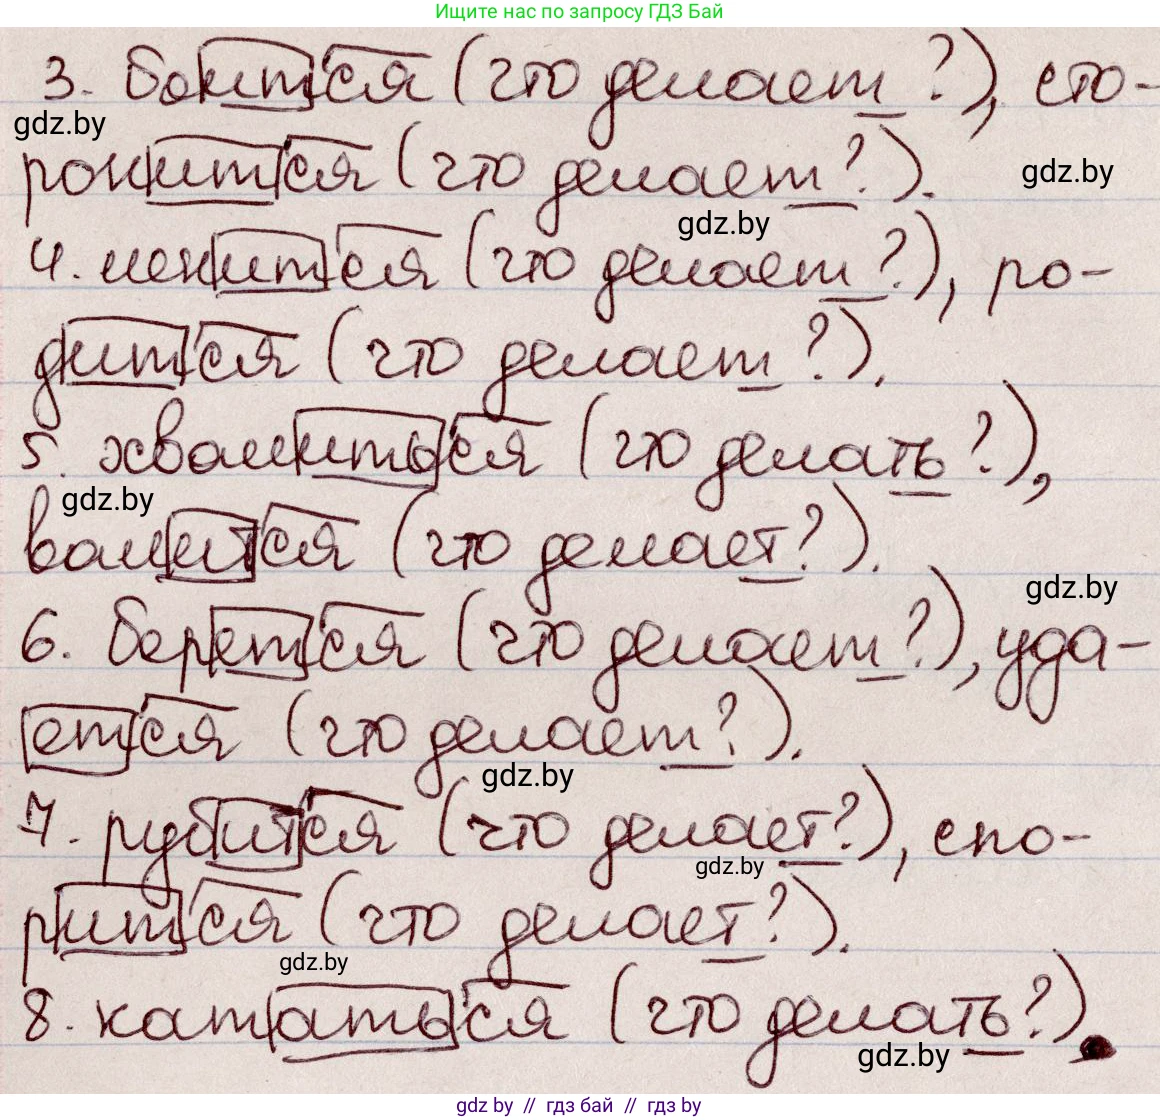 Ищите нас по запросу ГДЗ Бай
3. боится (что делает?), сто-
gdz.by
ронится (что делает?).
gdz.by
gdz.by
4. ценится (что делает?), ро-
дится (что делает?).
5. хвалиться (что делать?),
gdz.by
валится (что делает?).
gdz.by
6. берется (что делает?), уда-
ется (что делает?).
gdz.by
7. рубится (что делает?), спо-
gdz.by
рится (что делает?).
gdz.by
8. кататься (что делать?).
gdz.by
gdz.by // гдз бай // гдз by